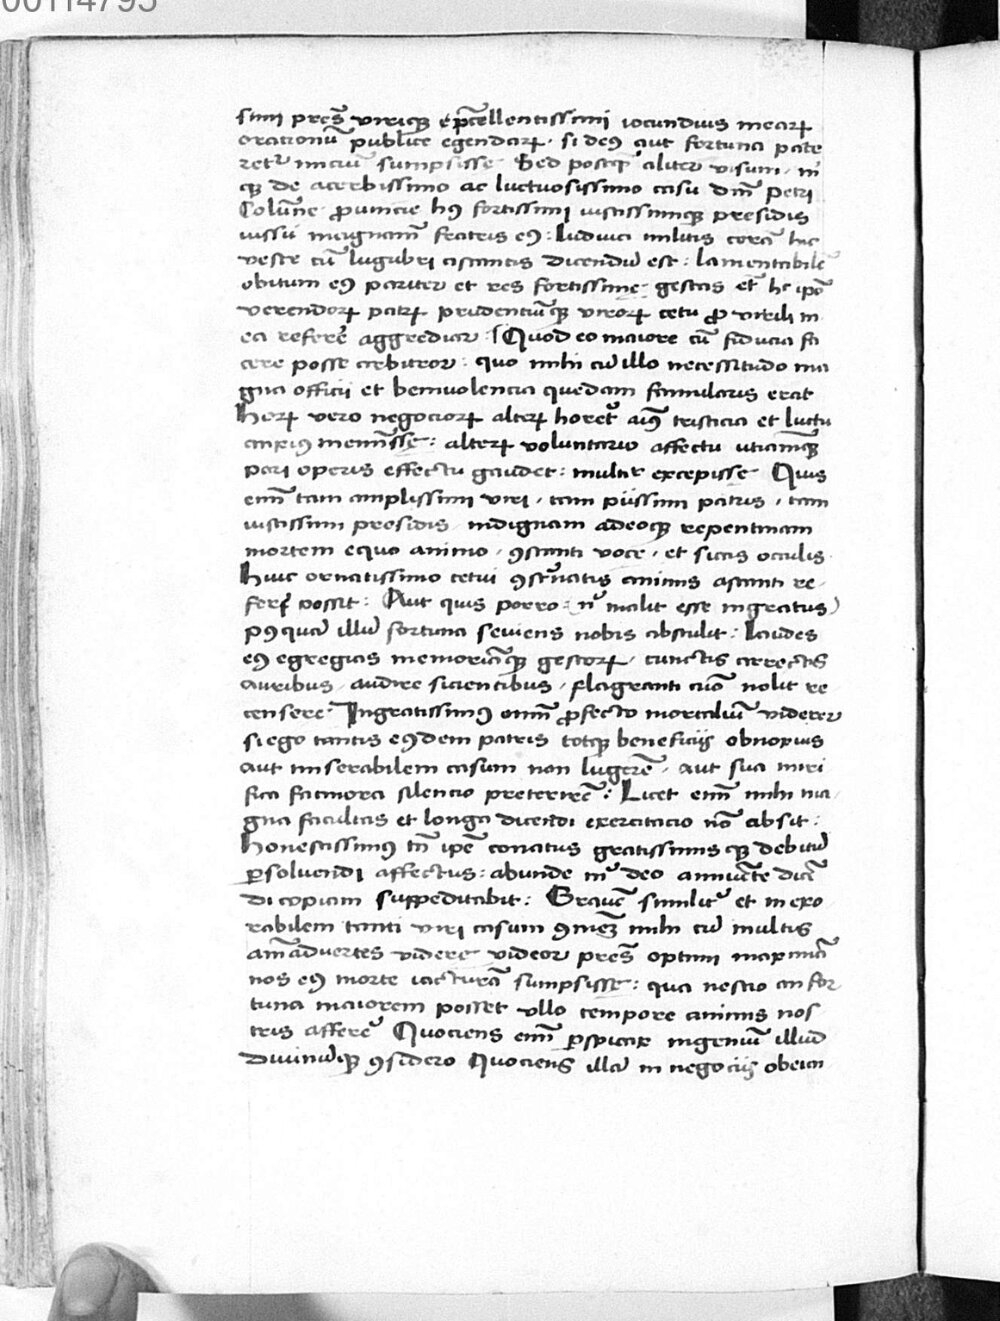 00114795
simi pres̄ viriq; ep̄cellentissimi iocundius mearꝝ
orationū publice egendarꝝ · si deꝰ aut fortuna pate
retᵘ inciū sumpsisse Sed postq̄ aliter visum · m̄
q; de acerbissimo ac luctuosissimo casu dn̄i petri
Colūne ꝓuincie hꝰ fortissimi iustissimiq; presidis
iussu magnam̄ fratris eꝰ : ludiuici militis corā hac
veste cū lugubri astantis dicendū est : lamentabilē
obitum eꝰ pariter et res fortissime gestas et̄ hc ip̄o
verendorꝝ patrꝝ prudentiūq; virorꝝ cetu ꝓ virili m
ea referre aggrediar Quod eo maiore cū fiducia fa
cere posse arbitror : quo mihi cū illo necessitudo ma
gna officii et beniuolencia quedam familiaris erat
horꝝ vero negociorꝝ alterꝝ horet᷑ aīꝰ tristicia et luctu
anxius memīsse : alterꝝ voluntario affectu utiamq;
pari operis effectu gaudet : multᵉ excepisse Quis
enī tam amplissimi viri , tam piissimi patris , tam
iustissimi presidis indignam adeoq; repentinam
mortem equo animo , ꝯstanti voce , et siccis occulis
huic ornatissimo cetui ꝯst̄natis animis astanti re
ferr̄ possit : Aut quis porro : n̄ malit esse ingratus
pꝰquā illū fortuna seuiens nobis abstulit : laudes
eꝰ egregias memoriāq; gestorꝝ , cunctis arrectis
auribus , audire sicientibus , flagranti aīo nolit re
censere Ingratissimꝰ enī ꝓfecto mortaliū viderer
si ego tantis eꝰdem patris totq; beneficiis obnoxius
aut miserabilem casum non lugerē , aut sua miri
fica facinora silencio preterirē : Licet enī mihi ma
gna facultas et longa dicendi exercitacio nō absit :
honestissimꝰ tn̄ ip̄e conatus gratissimusq; debitū
ꝑsoluendi affectus : abunde m᷑ deo annuēte dicē
di copiam suppeditabit : Grauē similit᷑ et inexo
rabilem tanti viri casum ꝯmēz mihi cū multis
am̄aduertes videre videor pres̄ optimi maximā
nos eꝰ morte iacturā sumpsisse : qua nescio an for
tuna maiorem posset vllo tempore animis nos
tris afferre᷑ Quociens enī ꝑspicax ingeniū illud
diuinūq; ꝯsidero Quociens illā in negociis obeun